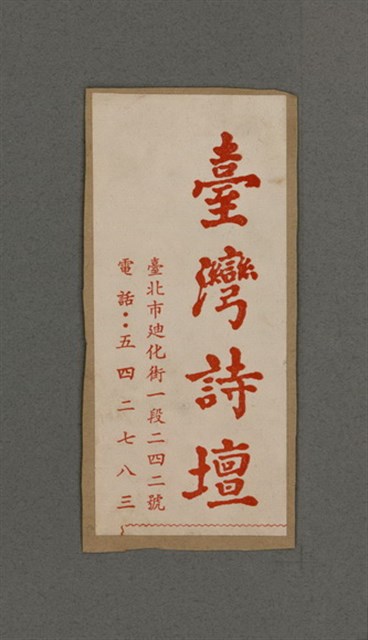 臺灣詩壇
臺北市廸化街一段二四二號
電話：五四二七八三